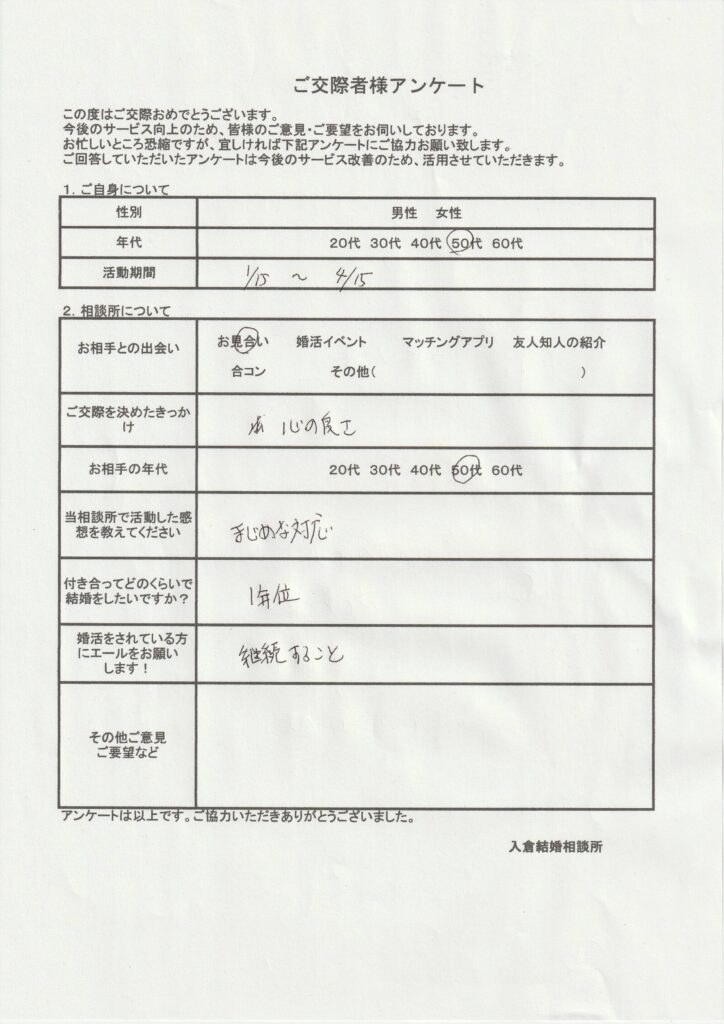 ご交際者様アンケート
この度はご交際おめでとうございます。
今後のサービス向上のため、皆様のご意見・ご要望をお伺いしております。
お忙しいところ恐縮ですが、宜しければ下記アンケートにご協力お願い致します。
ご回答していただいたアンケートは今後のサービス改善のため、活用させていただきます。
１．ご自身について
性別 男性 女性
年代 20代 30代 40代 50代 60代
活動期間 1/15 ～ 4/15
２．相談所について
お相手との出会い お見合い 婚活イベント マッチングアプリ 友人知人の紹介
合コン その他（ ）
ご交際を決めたきっか
け 心の良さ
お相手の年代 20代 30代 40代 50代 60代
当相談所で活動した感
想を教えてください まじめな対応
付き合ってどのくらいで
結婚をしたいですか？ 1年位
婚活をされている方
にエールをお願い
します！ 継続すること
その他ご意見
ご要望など
アンケートは以上です。ご協力いただきありがとうございました。
入倉結婚相談所